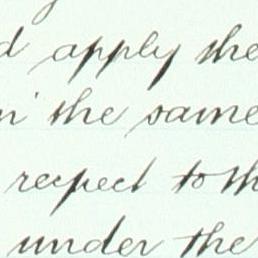 apply the
the same
respect to th
under the